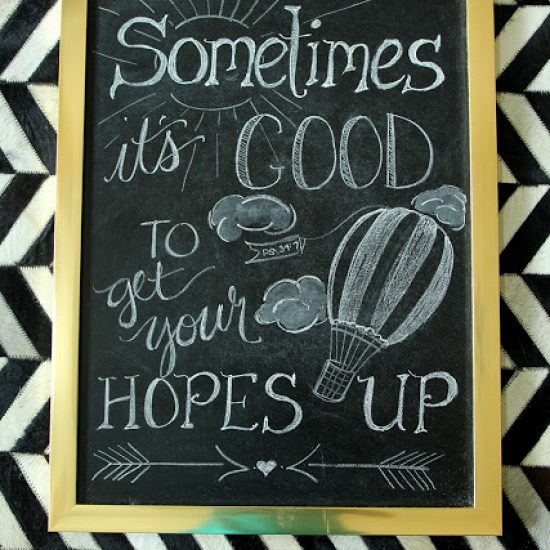 Sometimes
it's GOOD
TO
PS. 39:7
get
your
HOPES UP